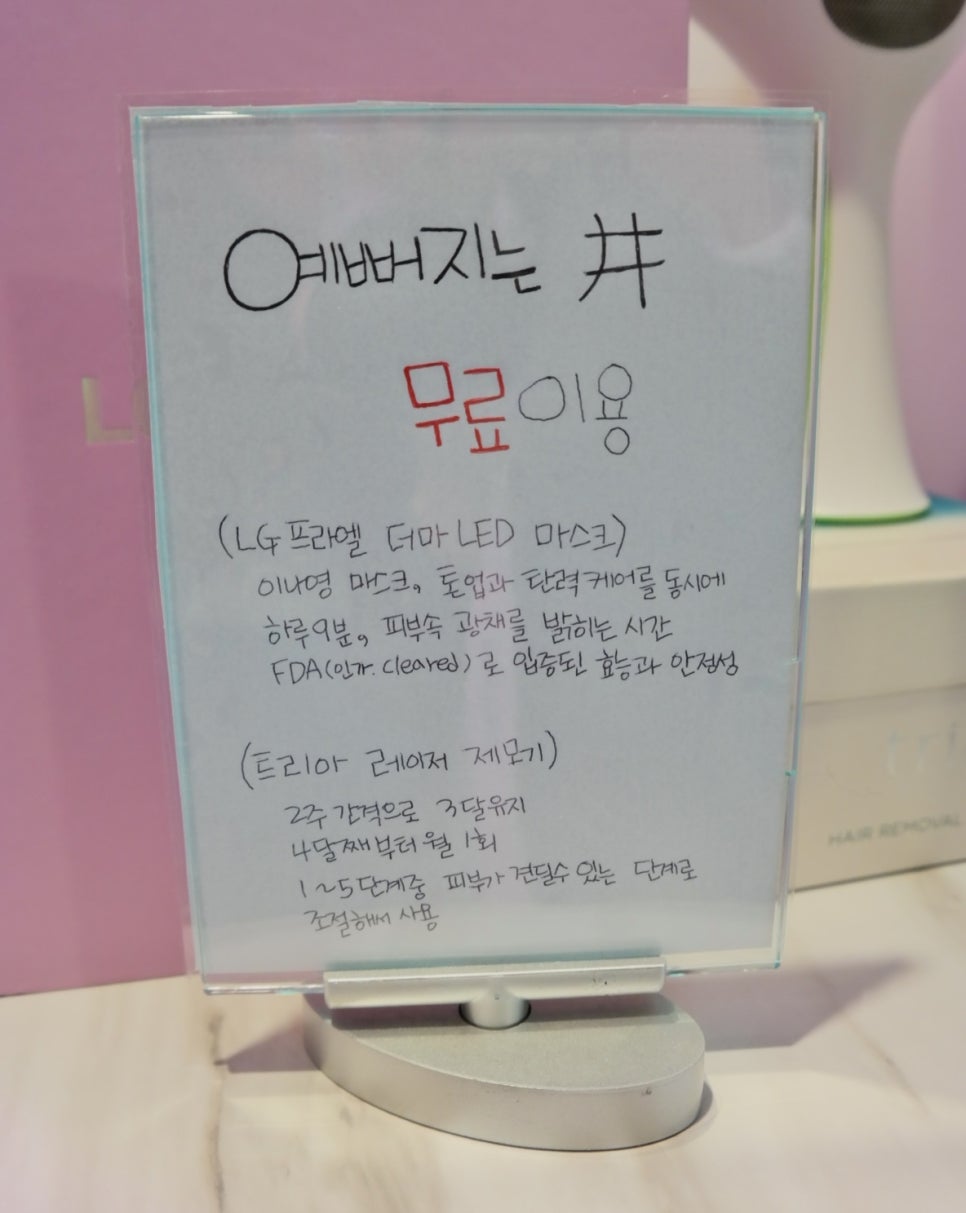 예뻐지는 井
무료이용
(LG프라엘 더마 LED 마스크)
이나영 마스크, 톤업과 탄력케어를 동시에
하루9분, 피부속 광채를 밝히는 시간
FDA(인가. Cleared)로 입증된 효능과 안정성
(트리아 레이저 제모기)
2주 간격으로 3달유지
4달째부터 월 1회
1~5단계중 피부가 견딜수 있는 단계로
조절해서 사용
tri
HAIR REMOVAL